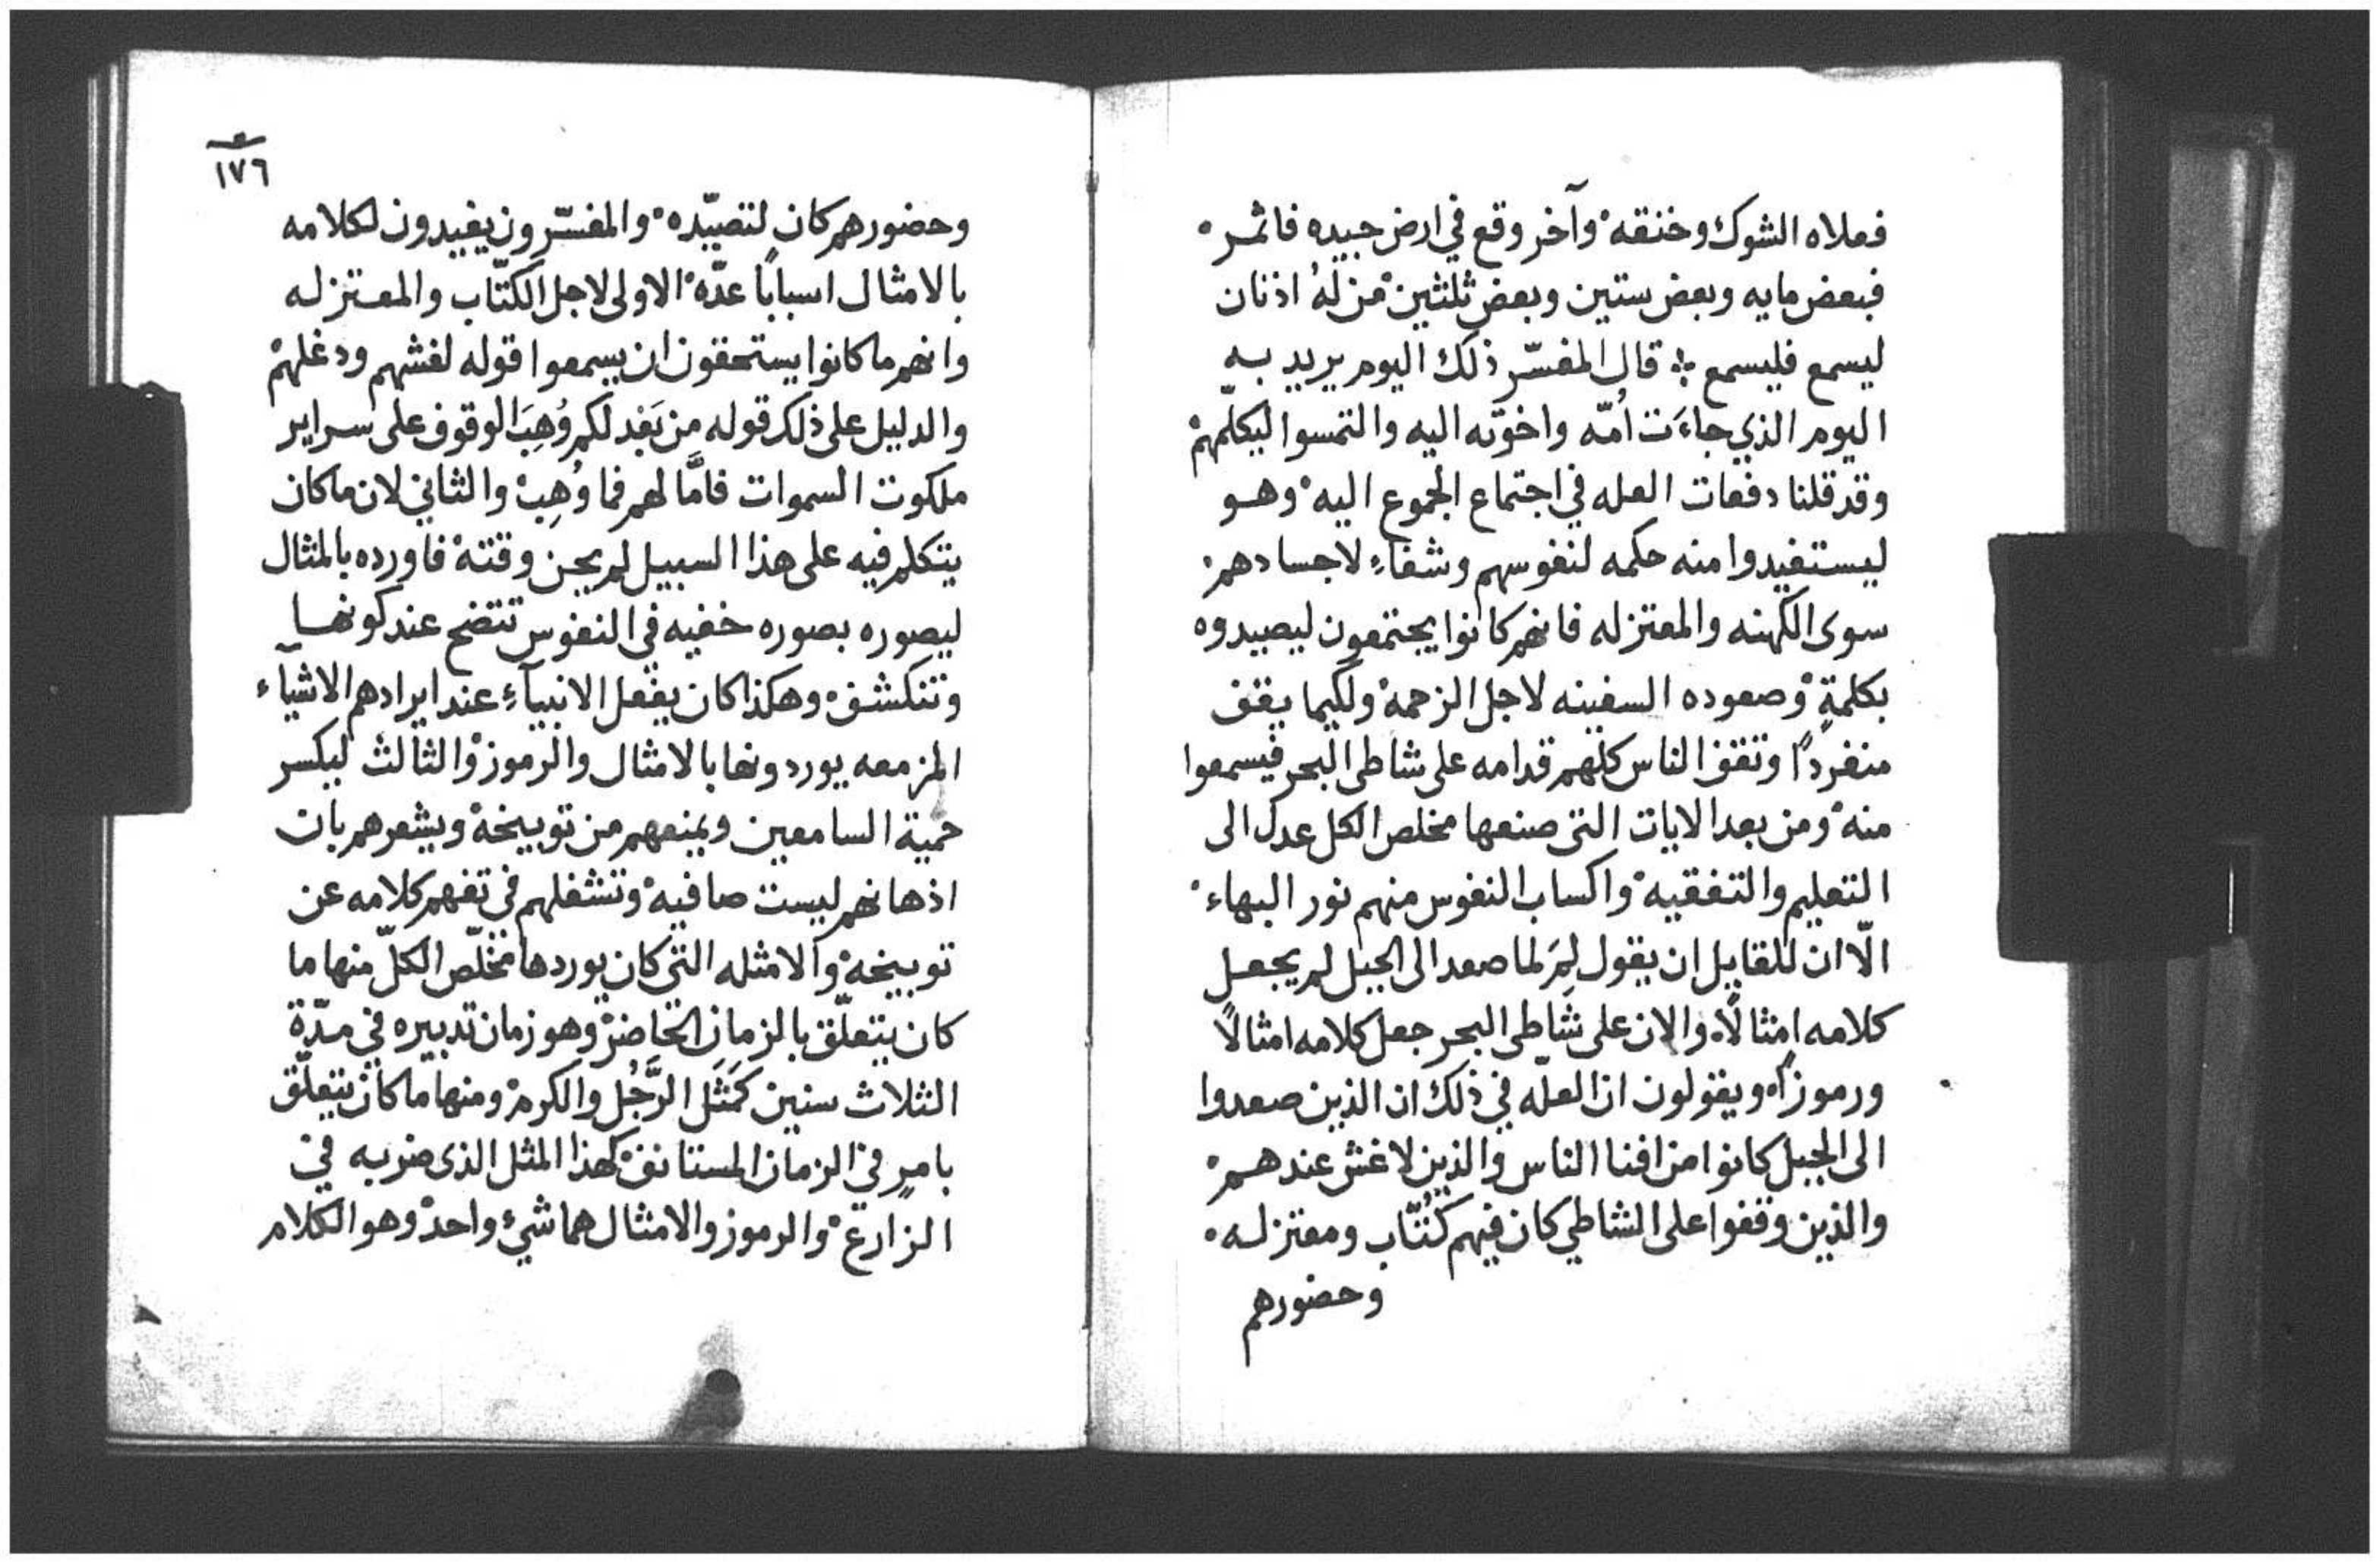 فعلاه الشوك وخنقه ْ وآخر وقع في ارض جيده فاثمر ْ
فبعض مايه وبعض ستين وبعض ثلثين ْ من لهُ اذنان
ليسمع فليسمع ÷ قال المفسّر ذلك اليوم يريد به
اليوم الذي جاءَت اُمّه واخوته اليه والتمسوا ليكلّمهم ْ
وقد قلنا دفعات العله في اجتماع الجموع اليه ْ وهو
ليستفيدوا منه حكمه لنفوسهم وشفاءِ لاجسادهم ْ
سوى الكهنه والمعتزله فانهم كانوا يجتمعون ليصيدوه
بكلمةٍ ْ وصعوده السفينه لاجل الزحمة ْ ولكيما يقف
منفردًا وتقف الناس كلهم قدامه على شاطى البحر فيسمعوا
منه ْ ومن بعد الايات التى صنعها مخلص الكل عدل الى
التعليم والتفقيه ْ واكساب النفوس منهم نور البهاء ْ
الّا ان للقايل ان يقول لِمَ لما صعد الى الجبل لم يجعل
كلامه امثالًا ْ والان على شاطى البحر جعل كلامه امثالًا
ورموزًا ْ ويقولون ان العلّه في ذلك ان الذين صعدوا
الى الجبل كانوا من افنا الناس والذين لا غش عندهم ْ
والذين وقفوا على الشاطي كان فيهم كُتّاب ومعتزله ْ
وحضورهم
١٧٦
وحضورهم كان لتصيّده ْ والمفسّرون يفيدون لكلامه
بالامثال اسبابًا عدّه ْ الاولى لاجل الكتّاب والمعتزله
وانهم ما كانوا يستحقون ان يسمعوا قوله لغشهم ودغلهم ْ
والدليل على ذلك قوله من بَعد لكم وُهِبَ الوقوف على سراير
ملكوت السموات فامَّا لهم فما وُهِب ْ والثاني لان ما كان
يتكلم فيه على هذا السبيل لم يجن وقته ْ فاورده بالمثال
ليصوره بصوره خفيه في النفوس تتضح عند كونها
وتنكشف ْ وهكذا كان يفعل الانبيآءِ عند ايرادهم الاشيآء
المزمعه يوردونها بالامثال والرموز ْ والثالث ليكسر
حمية السامعين ويمنعهم من توبيخة ْ ويشعرهم بان
اذهانهم ليست صافيه ْ وتشغلهم في تفهم كلامه عن
توبيخه ْ والامثله التى كان يوردها مخلّص الكلّ منها ما
كان يتعلّق بالزمان الحاضر ْ وهو زمان تدبيره في مدّة
الثلاث سنين ْ كمَثَل الرَّجُل والكرم ْ ومنها ما كان يتعلّق
بامرٍ في الزمان المستانف ْ كهذا المثل الذى ضربه في
الزارع ْ والرموز والامثال هما شيء واحد ْ وهو الكلام